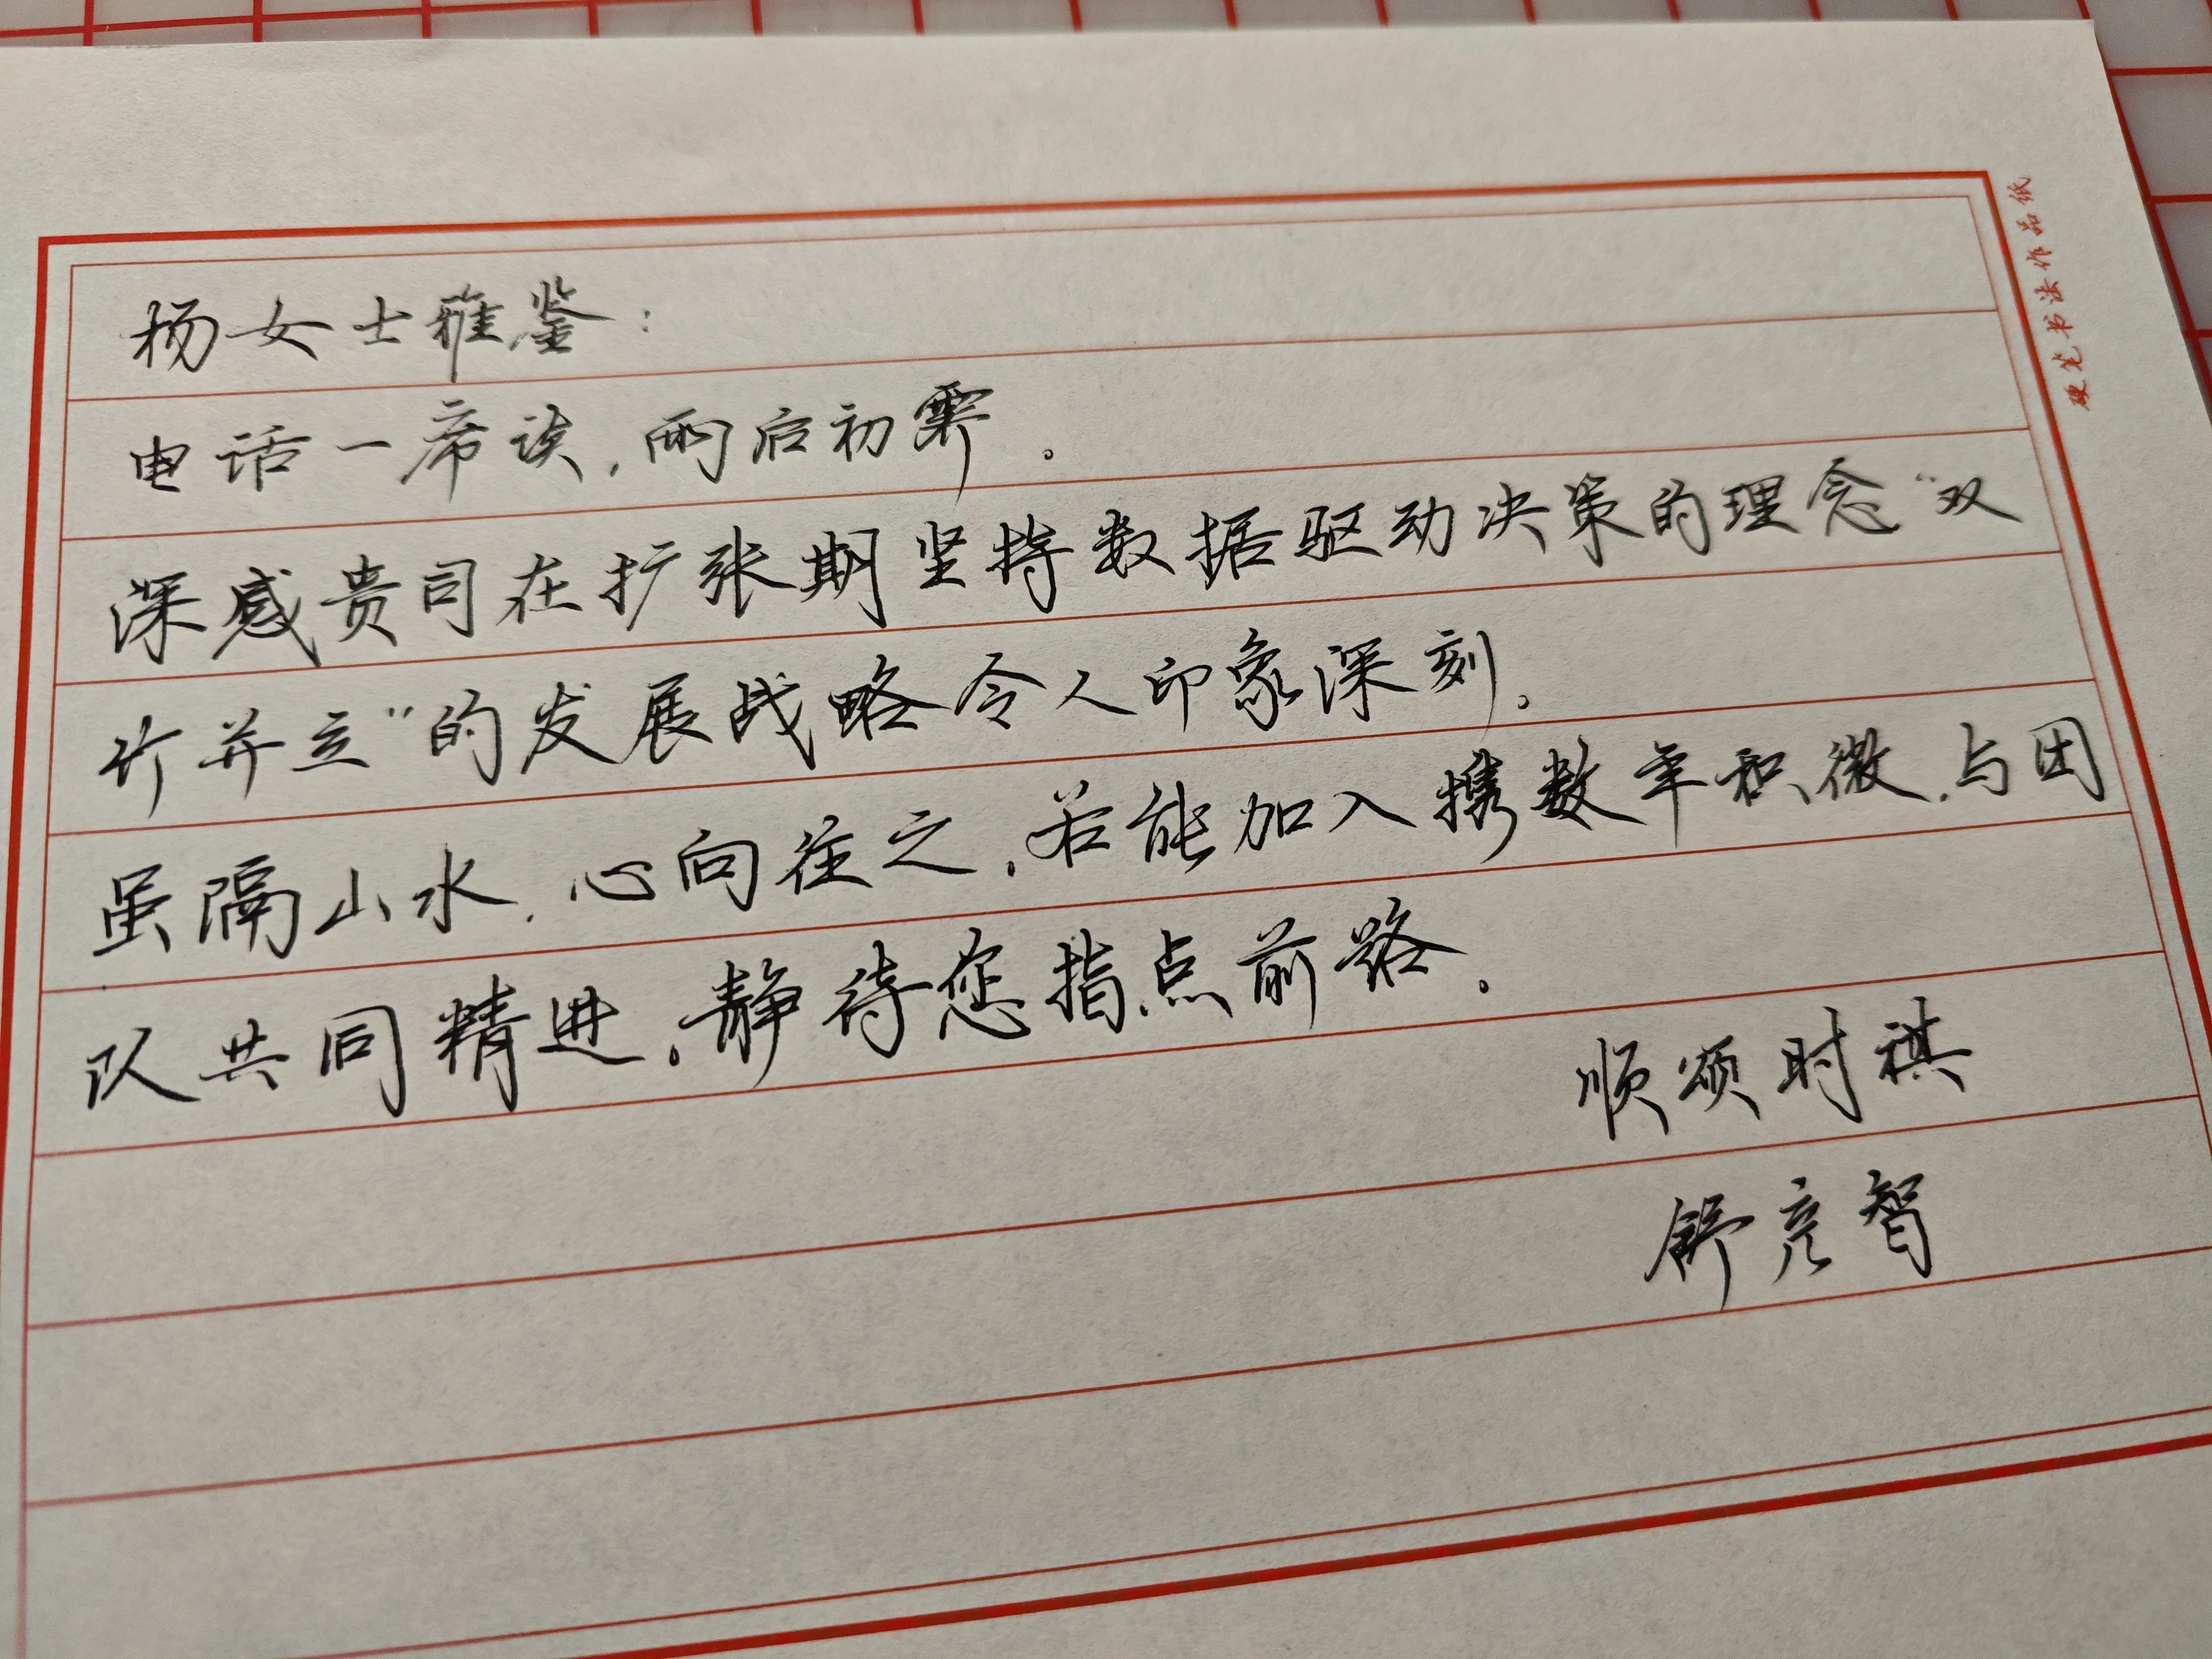 杨女士雅鉴：
电话一席谈，雨后初霁。
深感贵司在扩张期坚持数据驱动决策的理念“双
行并立”的发展战略令人印象深刻。
虽隔山水，心向往之，若能加入携数年积微，与团
队共同精进。静待您指点前路。
顺颂时祺
舒亮智
硬笔书法作品纸